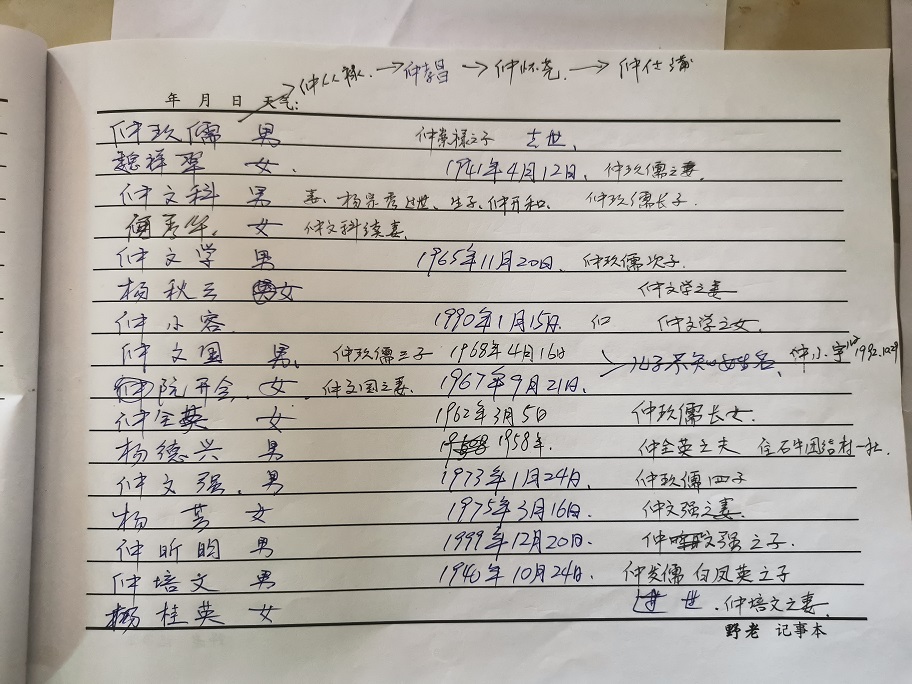 → 仲从禄 → 仲孝昌 → 仲怀尧 → 仲仕溥
年 月 日 天气:
仲玖儒 男 仲崇禄之子 去世、
魏祥翠 女. 1941年4月12日、仲玖儒之妻.
仲文科 男 妻、杨宗秀过世、生子、仲开和、 仲玖儒长子.
女 仲文科续妻.
仲文学 男 1965年11月20日、仲玖儒次子.
杨秋云 女 仲文学之妻
仲小容. 1990年1月15日. 仲文学之女.
仲文国 男、仲玖儒三子 1968年4月16日 儿子 仲小宇 1992.
院开会. 女、仲文国之妻. 1967年9月21日.
仲全英 女 1962年3月5日 仲玖儒长女.
杨德兴 男 1958年. 仲全英之夫 住石牛 村一社.
仲文强. 男 1973年1月24日. 仲玖儒四子
杨芳 女 1975年3月16日. 仲文强之妻.
仲昕昀 男 1999年12月20日. 仲文强之子.
仲培文 男 1940年10月24日. 仲发儒 白凤英之子
杨桂英 女 世.仲培文之妻.
野老 记事本